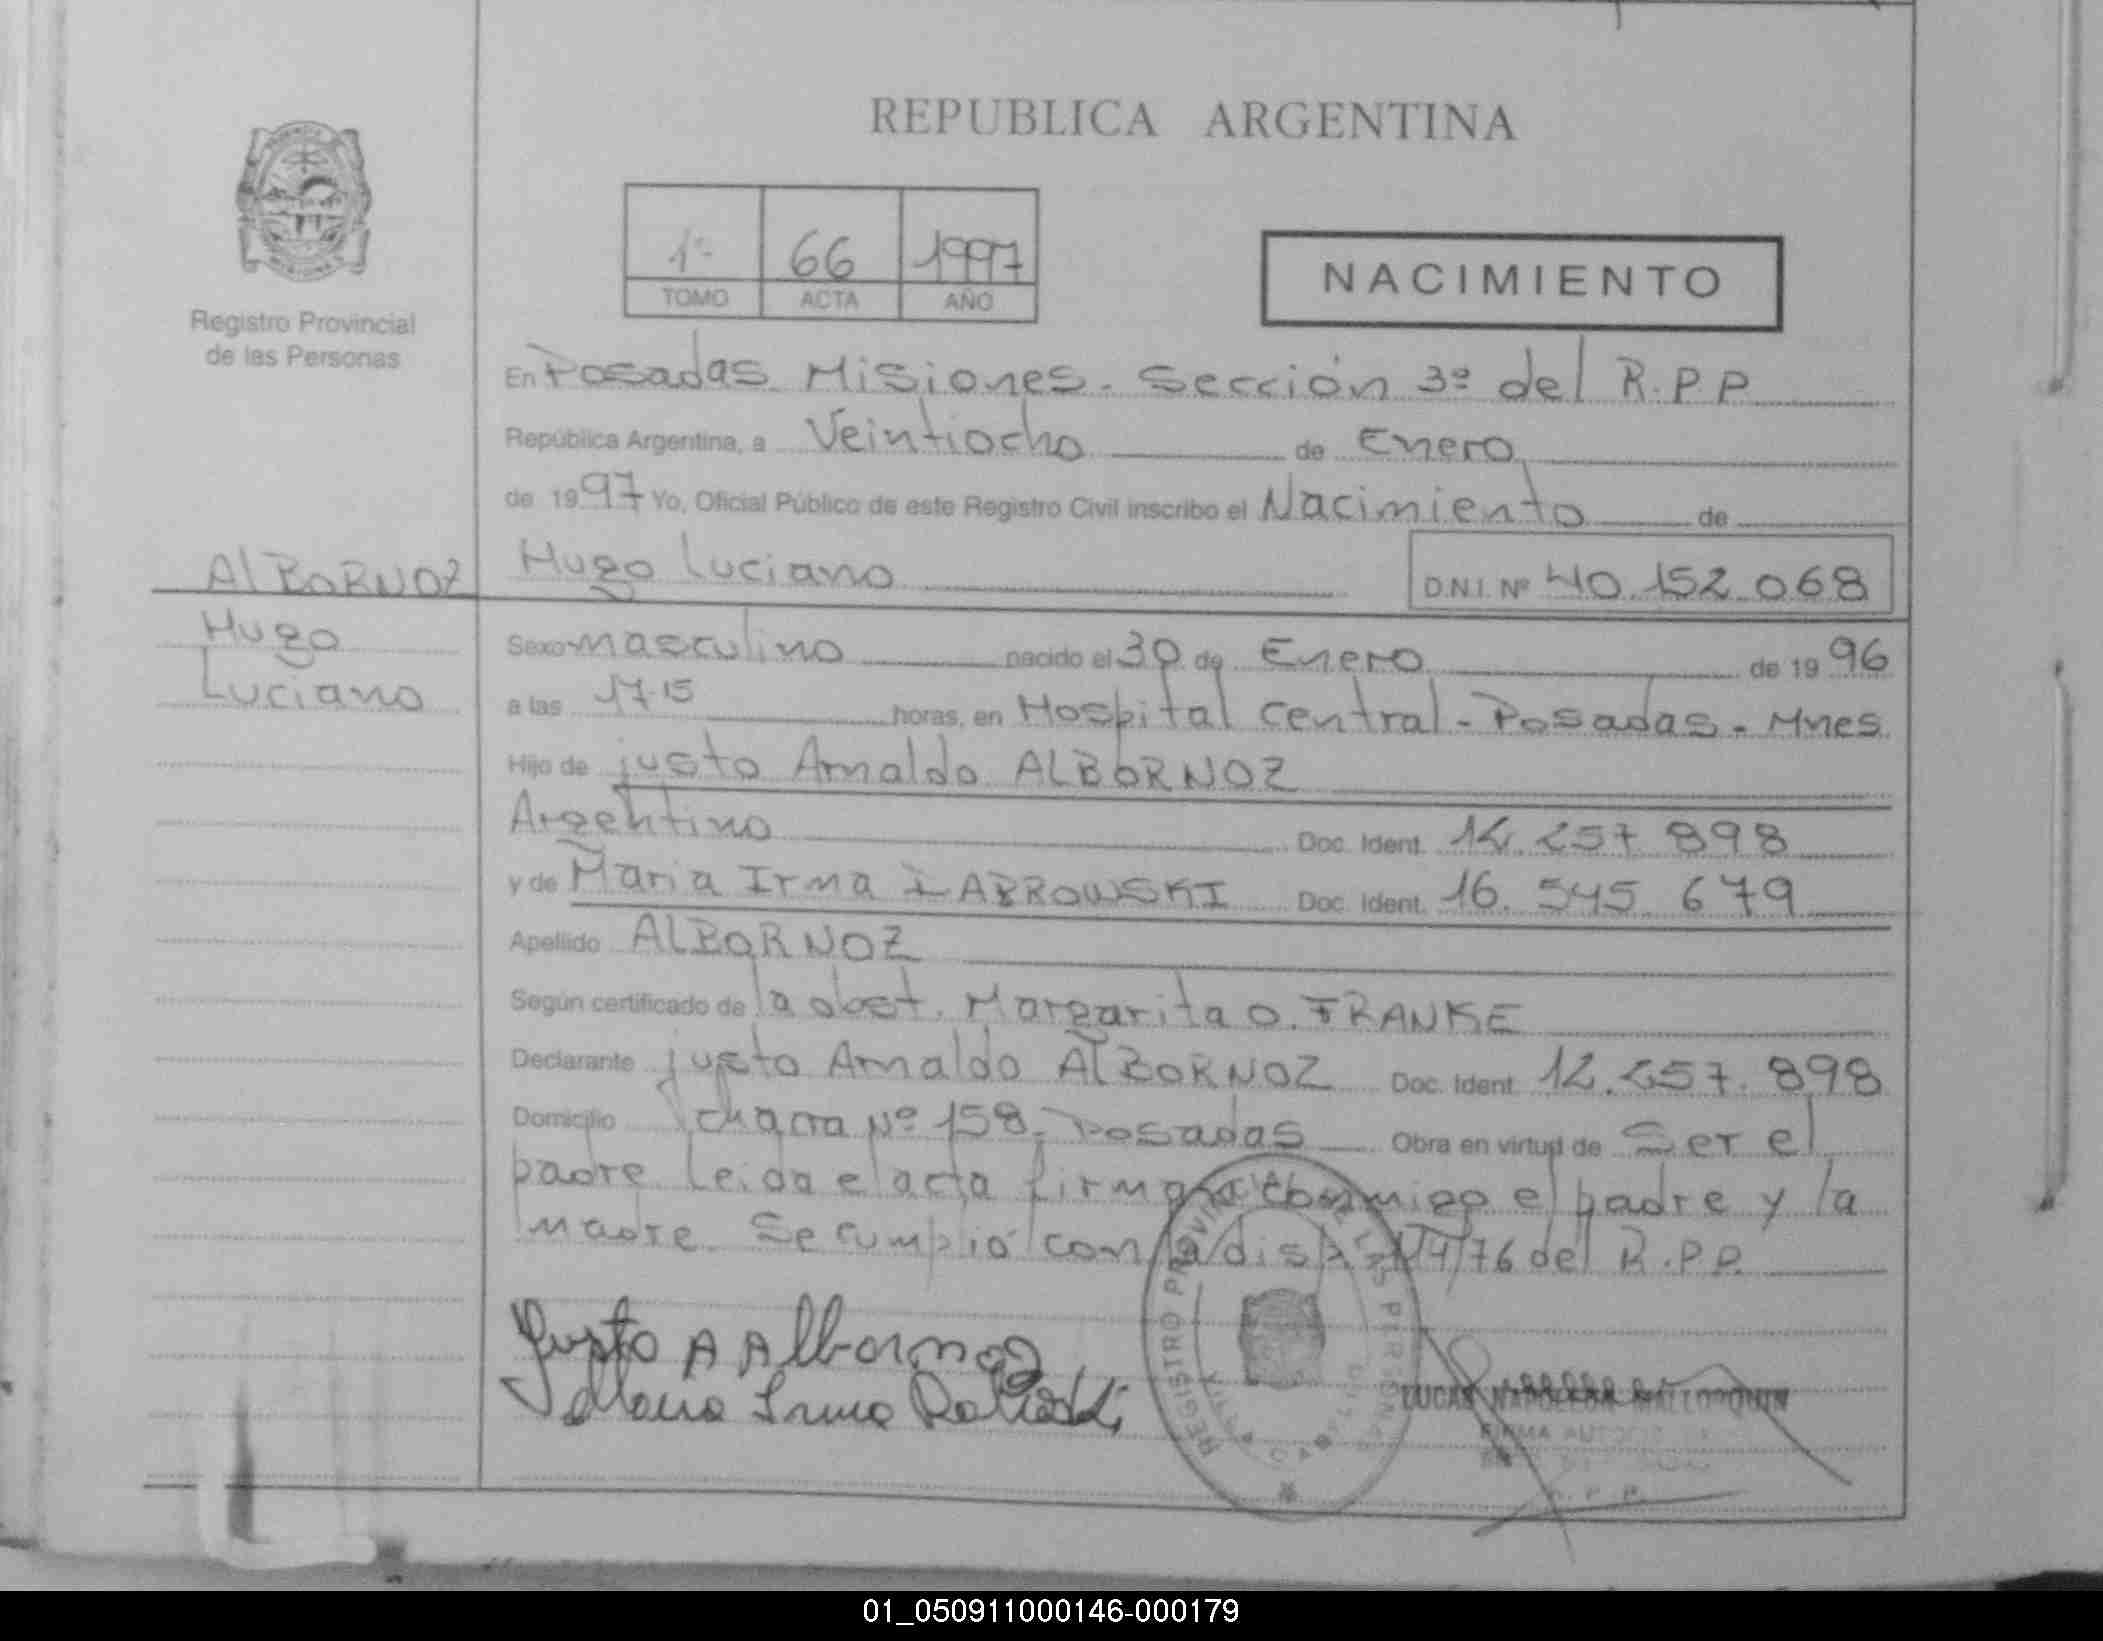 REPUBLICA ARGENTINA
1º 66 1997
TOMO ACTA AÑO
NACIMIENTO
Registro Provincial
de las Personas
En Posadas Misiones. Sección 3º del R.P.P
República Argentina, a Veintiocho de Enero
de 1997 Yo, Oficial Público de este Registro Civil inscribo el Nacimiento de
ALBORNOZ Hugo Luciano D.N.I. Nº 40.152.068
Hugo
Luciano
Sexo masculino nacido el 30 de Enero de 1996
a las 17.15 horas, en Hospital Central - Posadas - Mnes.
Hijo de justo Arnaldo ALBORNOZ
Argentino Doc. Ident. 12.257.898
y de Maria Irma Doc. Ident. 16.545.679
Apellido ALBORNOZ
Según certificado de la obst. Margarita O. FRANKE
Declarante justo Arnaldo ALBORNOZ Doc. Ident. 12.257.898
Domicilio chacra Nº 158. Posadas Obra en virtud de Ser el
padre. Leida el acta firman conmigo el padre y la
madre. Se cumplió con la disp. /76 del R.P.P.
Justo A Albornoz
Maria Irma
REGISTRO PROVINCIAL DE LAS PERSONAS
LUCAS NAPOLEON
FIRMA
R. P. P.
01_050911000146-000179